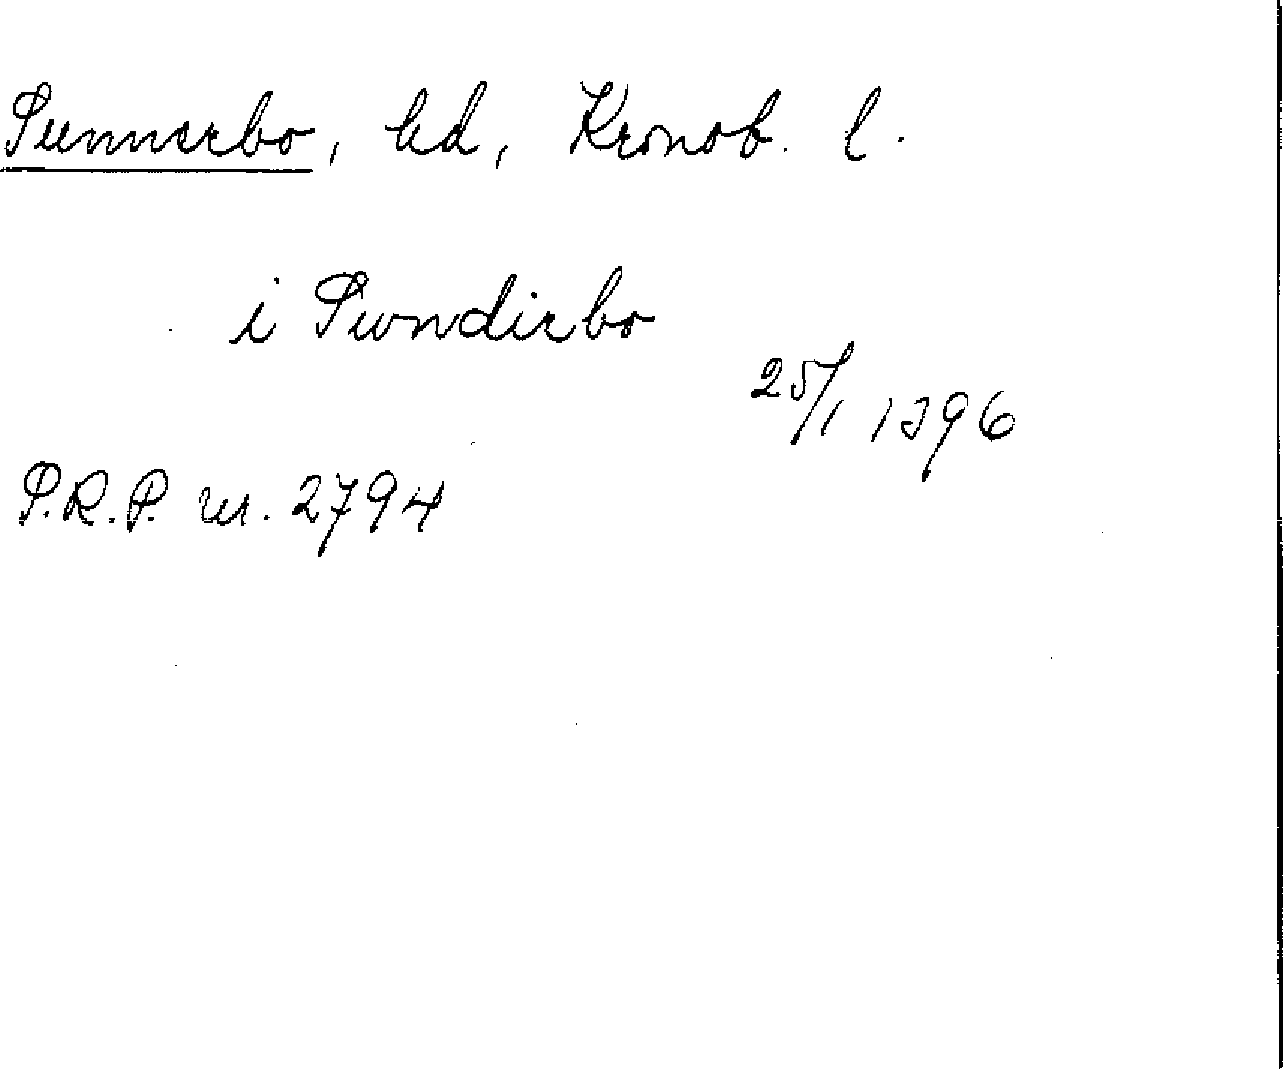 Sunnerbo, hd, Kronob. l.
i Swndirbo
25/1 1396
S.R.P. nr. 2794